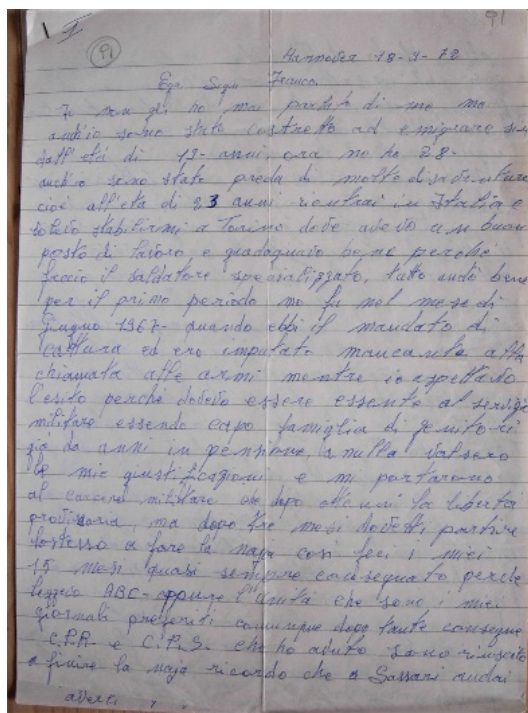 1 I
91
91
Hannover 18-9-72
Egr. Sign. Franco.
Io non gli ho mai parlato di me ma
anch'io sono stato costretto ad emigrare sin
dall'età di 19- anni, ora no ho 28-
anch'io sono stato preda di molte disaventure
cioè all'età di 23 anni rientrai in Italia e
volevo stabilirmi a Torino dove avevo un buon
posto di lavoro e guadagnavo bene perché
faccio il saldatore specializzato, tutto andò bene
per il primo periodo ma fu nel mese di
Giugno 1967- quando ebbi il mandato di
cattura ed ero imputato mancante alla
chiamata alle armi mentre io aspettavo
l'esito perché dovevo essere essente al servizio
militare essendo capo famiglia di genitori
già da anni in pensione, a nulla valsero
le mie giustificazioni e mi portarono
al carcere militare che dopo ottenni la libertà
provvisoria, ma dopo tre mesi dovetti partire
lostesso a fare la naja così feci i miei
15 mesi quasi sempre consegnato perché
leggevo ABC- oppure l'Unità che sono i miei
giornali preferiti comunque dopo tante consegne
C.P.R. e C.P.S. che ho avuto sono riuscito
a finire la naja ricordo che a Sassari andai